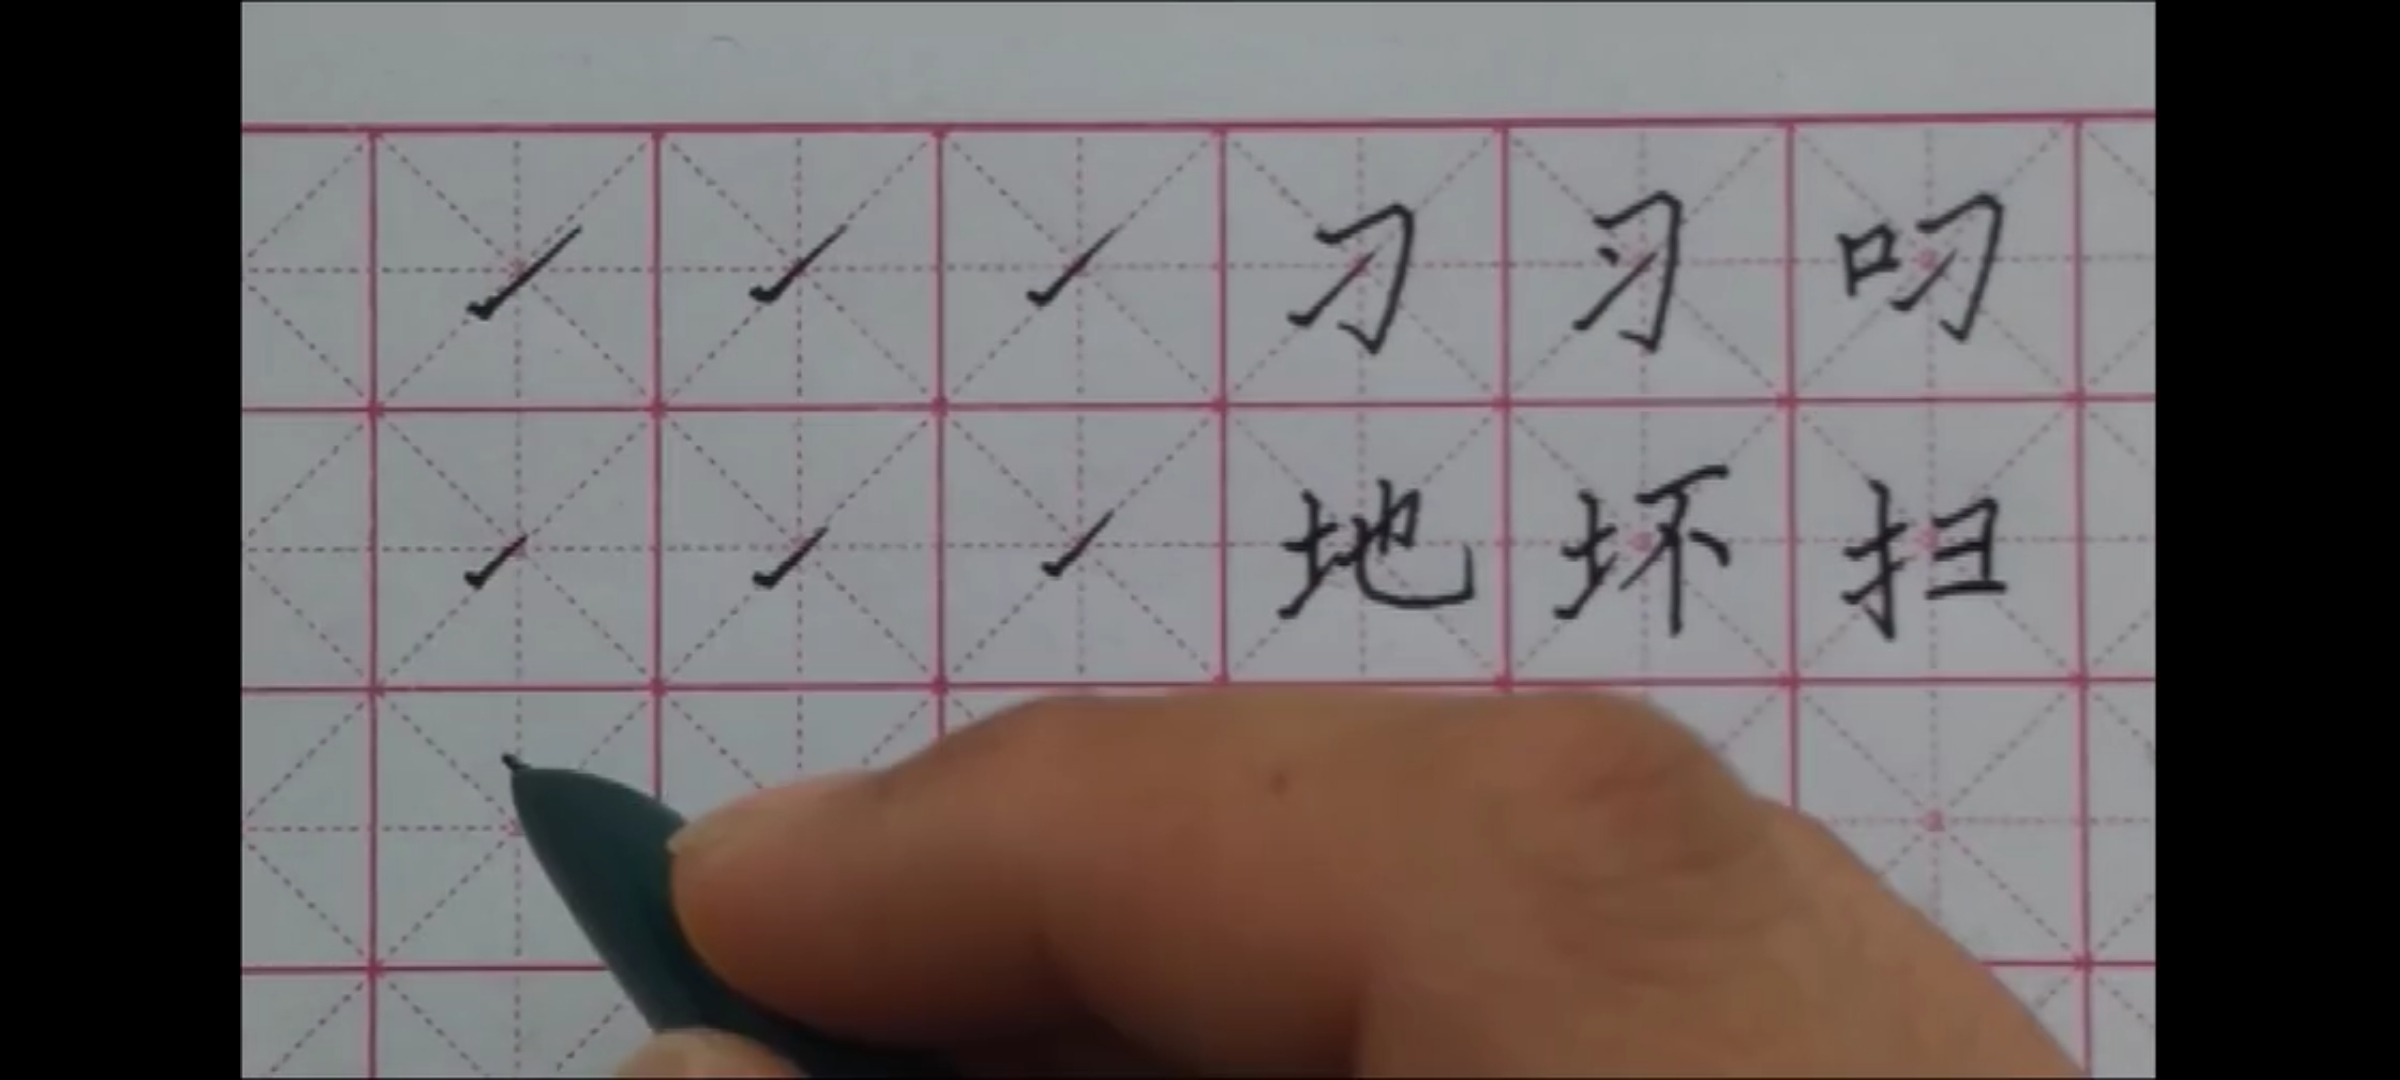 ㇀ ㇀ ㇀ 刁 习 叼
㇀ ㇀ ㇀ 地 坏 扫